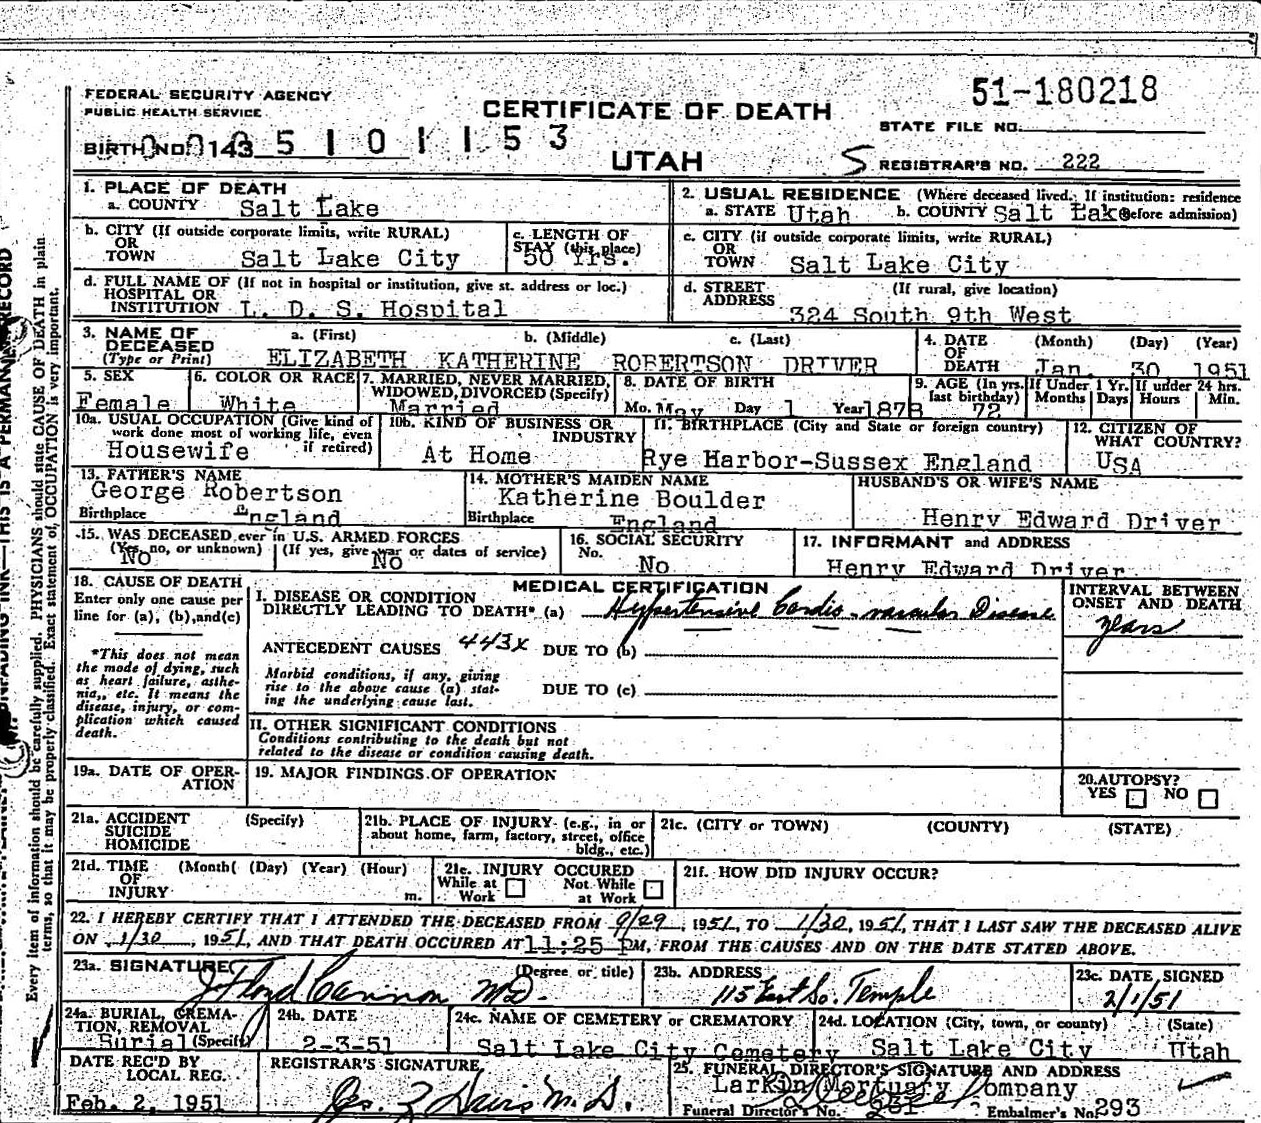 51-180218
FEDERAL SECURITY AGENCY
PUBLIC HEALTH SERVICE
CERTIFICATE OF DEATH
STATE FILE NO.
BIRTH NO. 143 5 1 0 1 1 5 3
UTAH
REGISTRAR'S NO. 222
1. PLACE OF DEATH
a. COUNTY Salt Lake
2. USUAL RESIDENCE (Where deceased lived. If institution: residence
a. STATE Utah b. COUNTY Salt Lake before admission)
b. CITY (If outside corporate limits, write RURAL)
OR
TOWN Salt Lake City
c. LENGTH OF
STAY (this place)
50 Yrs.
c. CITY (if outside corporate limits, write RURAL)
OR
TOWN Salt Lake City
d. FULL NAME OF (If not in hospital or institution, give st. address or loc.)
HOSPITAL OR
INSTITUTION L. D. S. Hospital
d. STREET (If rural, give location)
ADDRESS
324 South 9th West
3. NAME OF DECEASED (Type or Print)
a. (First) b. (Middle) c. (Last)
ELIZABETH KATHERINE ROBERTSON DRIVER
4. DATE OF DEATH (Month) (Day) (Year)
Jan. 30 1951
5. SEX
Female
6. COLOR OR RACE
White
7. MARRIED, NEVER MARRIED,
WIDOWED, DIVORCED (Specify)
Married
8. DATE OF BIRTH
Mo. May Day 1 Year 1878
9. AGE (In yrs. last birthday)
72
If Under 1 Yr. Months Days
If under 24 hrs. Hours Min.
10a. USUAL OCCUPATION (Give kind of
work done most of working life, even
if retired)
Housewife
10b. KIND OF BUSINESS OR
INDUSTRY
At Home
11. BIRTHPLACE (City and State or foreign country)
Rye Harbor-Sussex England
12. CITIZEN OF
WHAT COUNTRY?
USA
13. FATHER'S NAME
George Robertson
Birthplace England
14. MOTHER'S MAIDEN NAME
Katherine Boulder
Birthplace England
HUSBAND'S OR WIFE'S NAME
Henry Edward Driver
15. WAS DECEASED ever in U.S. ARMED FORCES
(Yes, no, or unknown) (If yes, give war or dates of service)
No No
16. SOCIAL SECURITY
No.
No
17. INFORMANT and ADDRESS
Henry Edward Driver
18. CAUSE OF DEATH
Enter only one cause per
line for (a), (b), and (c)
*This does not mean
the mode of dying, such
as heart failure, asthe-
nia, etc. It means the
disease, injury, or com-
plication which caused
death.
MEDICAL CERTIFICATION
I. DISEASE OR CONDITION
DIRECTLY LEADING TO DEATH* (a) Hypertensive Cardio-vascular Disease
INTERVAL BETWEEN
ONSET AND DEATH
years
ANTECEDENT CAUSES 443x DUE TO (b)
Morbid conditions, if any, giving
rise to the above cause (a) stat-
ing the underlying cause last.
DUE TO (c)
II. OTHER SIGNIFICANT CONDITIONS
Conditions contributing to the death but not
related to the disease or condition causing death.
19a. DATE OF OPER-
ATION
19. MAJOR FINDINGS OF OPERATION
20. AUTOPSY?
YES NO
21a. ACCIDENT (Specify)
SUICIDE
HOMICIDE
21b. PLACE OF INJURY (e.g., in or
about home, farm, factory, street, office
bldg., etc.)
21c. (CITY or TOWN) (COUNTY) (STATE)
21d. TIME (Month( (Day) (Year) (Hour)
OF
INJURY m.
21e. INJURY OCCURED
While at Work Not While at Work
21f. HOW DID INJURY OCCUR?
22. I HEREBY CERTIFY THAT I ATTENDED THE DECEASED FROM 9/29, 1951, TO 1/30, 1951, THAT I LAST SAW THE DECEASED ALIVE
ON 1/30, 1951, AND THAT DEATH OCCURED AT 11:25 PM, FROM THE CAUSES AND ON THE DATE STATED ABOVE.
23a. SIGNATURE (Degree or title)
J Floyd Cannon MD.
23b. ADDRESS
115 East So. Temple
23c. DATE SIGNED
2/1/51
24a. BURIAL, CREMA-
TION, REMOVAL
(Specify)
Burial
24b. DATE
2-3-51
24c. NAME OF CEMETERY or CREMATORY
Salt Lake City Cemetery
24d. LOCATION (City, town, or county) (State)
Salt Lake City Utah
DATE REC'D BY
LOCAL REG.
Feb. 2, 1951
REGISTRAR'S SIGNATURE
25. FUNERAL DIRECTOR'S SIGNATURE AND ADDRESS
Larkin Mortuary Company
Funeral Director's No. 231 Embalmer's No. 293
Every item of information should be carefully supplied. PHYSICIANS should state CAUSE OF DEATH in plain
terms, so that it may be properly classified. Exact statement of OCCUPATION is very important.
UNFADING INK—THIS IS A PERMANENT RECORD